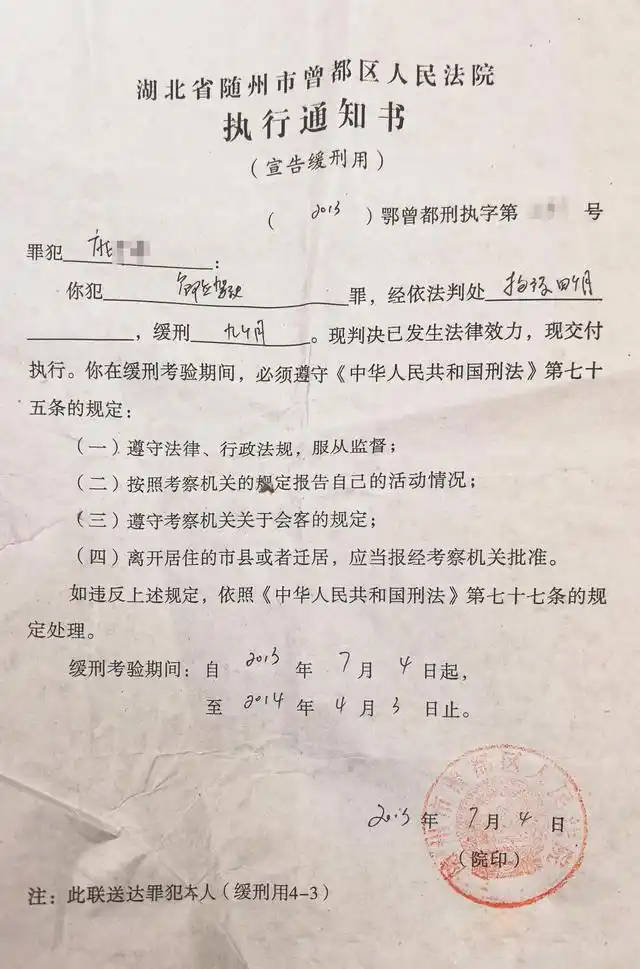 湖北省随州市曾都区人民法院
执行通知书
（宣告缓刑用）
（2013）鄂曾都刑执字第 号
罪犯 ：
你犯 危险驾驶 罪，经依法判处 拘役四个月
，缓刑 九个月 。现判决已发生法律效力，现交付
执行。你在缓刑考验期间，必须遵守《中华人民共和国刑法》第七十
五条的规定：
（一）遵守法律、行政法规，服从监督；
（二）按照考察机关的规定报告自己的活动情况；
（三）遵守考察机关关于会客的规定；
（四）离开居住的市县或者迁居，应当报经考察机关批准。
如违反上述规定，依照《中华人民共和国刑法》第七十七条的规
定处理。
缓刑考验期间：自 2013 年 7 月 4 日起，
至 2014 年 4 月 3 日止。
2013 年 7 月 4 日
（院印）
注：此联送达罪犯本人（缓刑用4-3）